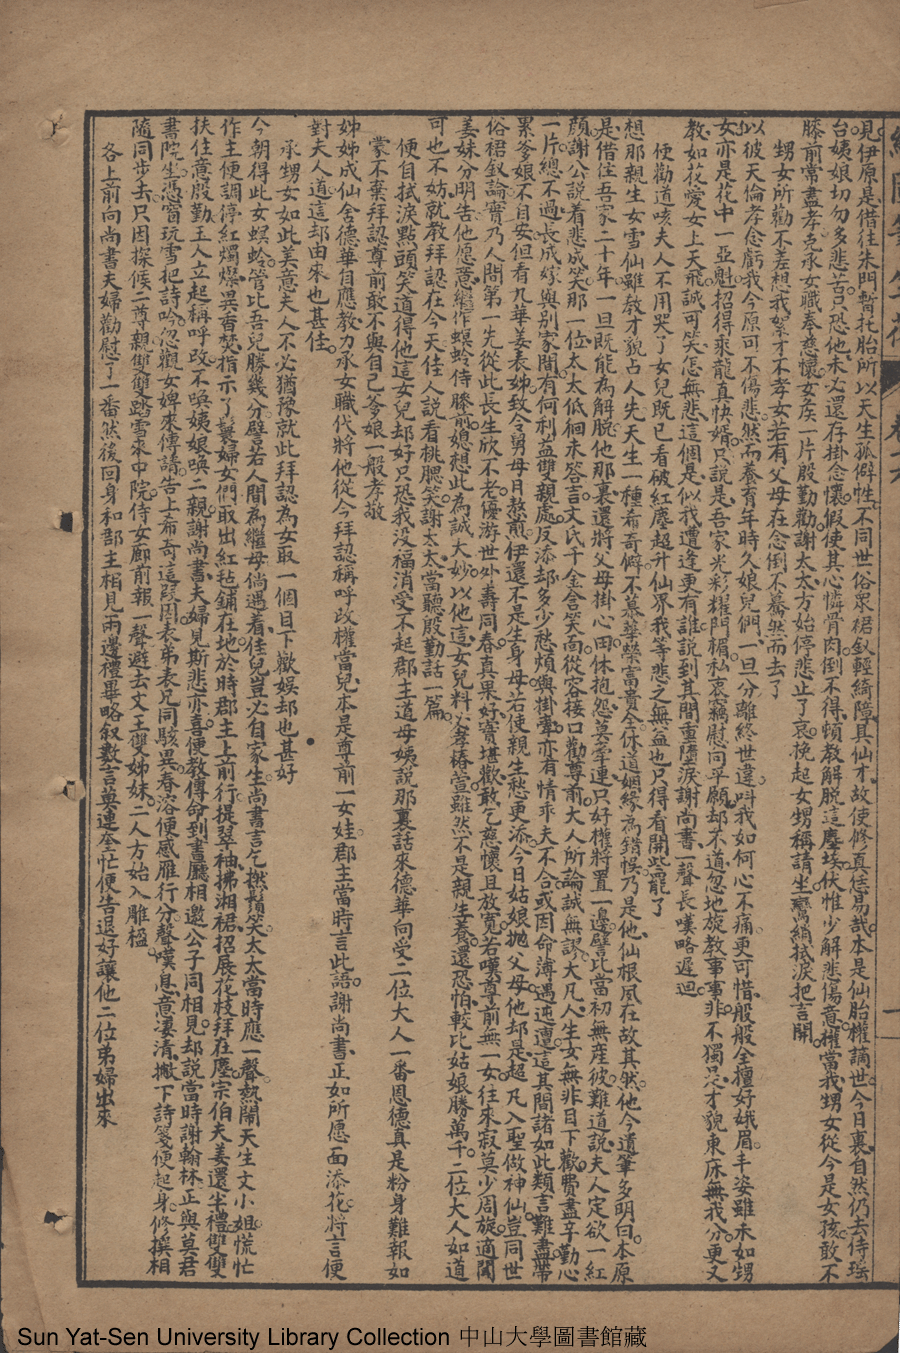 見伊原是借住朱門暫托胎所以天生孤僻性不同世俗眾裙釵輕綺障具仙才故使修真恁易哉本是仙胎權謫世今日裏自然仍去侍瑤
台姨娘切勿多悲苦恐他未必還存掛念懷假使其心憐骨肉倒不得頓教解脫這塵埃伏惟少解悲傷意權當我甥女從今是女孩敢不
膝前當盡孝克承女職奉慈懷女矦一片殷勤勸謝太太方始停悲止了哀挽起女甥稱請坐鸞綃抵淚把言開
甥女所勸不差想我絮才不孝女若有父母在念倒不驀然而去了
以彼天倫孝念虧我今原可不傷悲然而養育年時久娘兒們一旦分離終世違呌我如何心不痛更可惜般般全擅好娥眉丰姿雖未如甥
女亦是花中一亞魁招得乘龍真快婿只說是吾家光彩耀門楣私哀竊慰同平願却不道忽地旋教事事非不獨足才貌東床無我分更又
教如花愛女上天飛誠可笑怎無悲這個是似我遭逢更有誰說到其間重墮淚謝尚書一聲長嘆略遲迴
便勸道咳夫人不用哭了女兒既已看破紅塵超升仙界我等悲之無益也只得看開些罷了
想那親生女雪仙雖教才貌占人先天生一種希奇僻不慕華榮富貴全休道姻緣為錯悞乃是他仙根夙在故其然他今遺筆多明白本原
是借住吾家二十年一旦既能為解脫他那裏還將父母掛心田休抱怨莫牽連只好權將置一邊譬比當初無産彼難道說夫人定欲一紅
顏謝公說着悲成笑那一位太太低徊未答言文氏千金含笑面從容接口勸尊前大人所論誠無謬大凡人生女無非目下歡費盡辛勤心
一片總不過長成嫁與別家間有何利益雙親處反添却多少愁煩與掛牽亦有情乖夫不合或因命薄遇迍邅這其間諸如此類言難盡帶
累爹娘不自安但看九華姜表姊致令舅母日熬煎伊還不是生身母若使親生愁更添今日姑娘拋父母他却是超凡入聖做神仙豈同世
俗裙釵論實乃人間第一先從此長生欣不老優游世外壽同春真果好實堪歡敢乞慈懷且放寬若嘆尊前無一女往來寂莫少周旋適聞
姜妹分明告他愿意繼作螟蛉侍膝前媳想此為誠大妙以他這女兒料必孝椿萱雖然不是親生養還恐怕較比姑娘勝萬千二位大人如道
可也不妨就教拜認在今天佳人說看桃腮笑謝太太當聽殷勤話一篇
便自拭淚點頭笑道得他這女兒却好只恐我没福消受不起郡主道母姨說那裏話來德華向受二位大人一番恩德真是粉身難報如
蒙不棄拜認尊前敢不與自己爹娘一般孝敬
姊姊成仙舍德華自應教力承女職代將他從今拜認稱呼改權當兒本是尊前一女娃郡主當時言此語謝尚書正如所愿面添花將言便
對夫人道這却由來也甚佳
承甥女如此美意夫人不必猶豫就此拜認為女取一個目下歡娛却也甚好
今朝得此女螟蛉管比吾兒勝幾分譬若人間為繼母倘遇着佳兒豈必自家生尚書言乞撚鬚笑太太當時應一聲熱鬧天生文小姐慌忙
作主便調停紅燭爆異香焚指示了鬟婦女們取出紅毡鋪在地於時郡主上前行提翠袖拂湘裙招展花枝拜在塵宗伯夫姜還半禮雙雙
扶住意殷勤玉人立起稱呼改不喚姨娘喚二親謝尚書夫婦見斯悲亦喜便教傳命到書廳相邀公子同相見却說當時謝翰林正與莫君
書院坐憑窗玩雪把詩吟忽觀女婢來傳請告上希奇這段因表弟表兄同駭異春溶便感雁行分聲嘆息意凄清撇下詩箋便起身修撰相
隨同步去只因探候二尊親雙雙踏雪來中院侍女廊前報一聲避去文王雙姊妹二人方始入雕楹
各上前向尚書夫婦勸慰了一番然後回身和郡主相見兩邊禮畢略叙數言莫連奎忙便告退好讓他二位弟婦出來
Sun Yat-Sen University Library Collection 中山大學圖書館藏